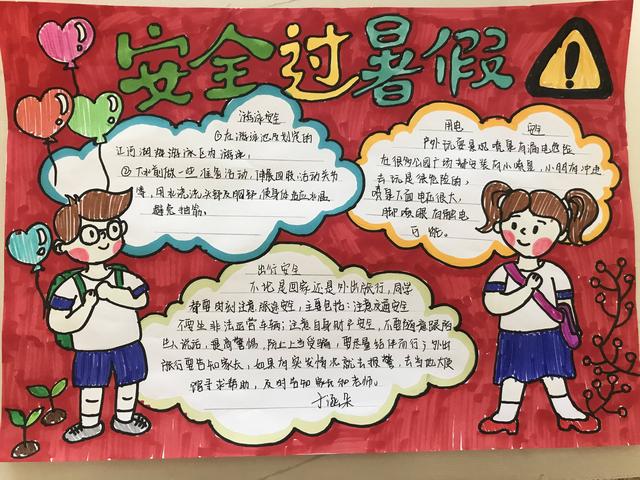 安全过暑假
游泳安全
①在游泳池及划定的
江河湖海游泳区内游泳。
②下水前做一些准备活动,伸展四肢,活动关节
用水洗洗头部及胸部,使身体适应水温
避免抽筋。
用电 安全
户外玩耍是双喷泉有漏电危险
在很多公园广场都安装有小喷泉,小朋友冲进
去玩是很危险的,
喷泉下面电压很大,
脚喷眼有触电
可能。
出行安全
不论是回家还是外出旅行,同学
都要时刻注意旅途安全,主要包括:注意交通安全
不要坐非法运营车辆;注意自身财产安全,不要随意跟陌
生人说话,提高警惕,防止上当受骗,要尽量结伴而行;外出
旅行要告知家长,如果有突发情况就去报警,去当地大使
馆寻求帮助,及时告知家长和老师。